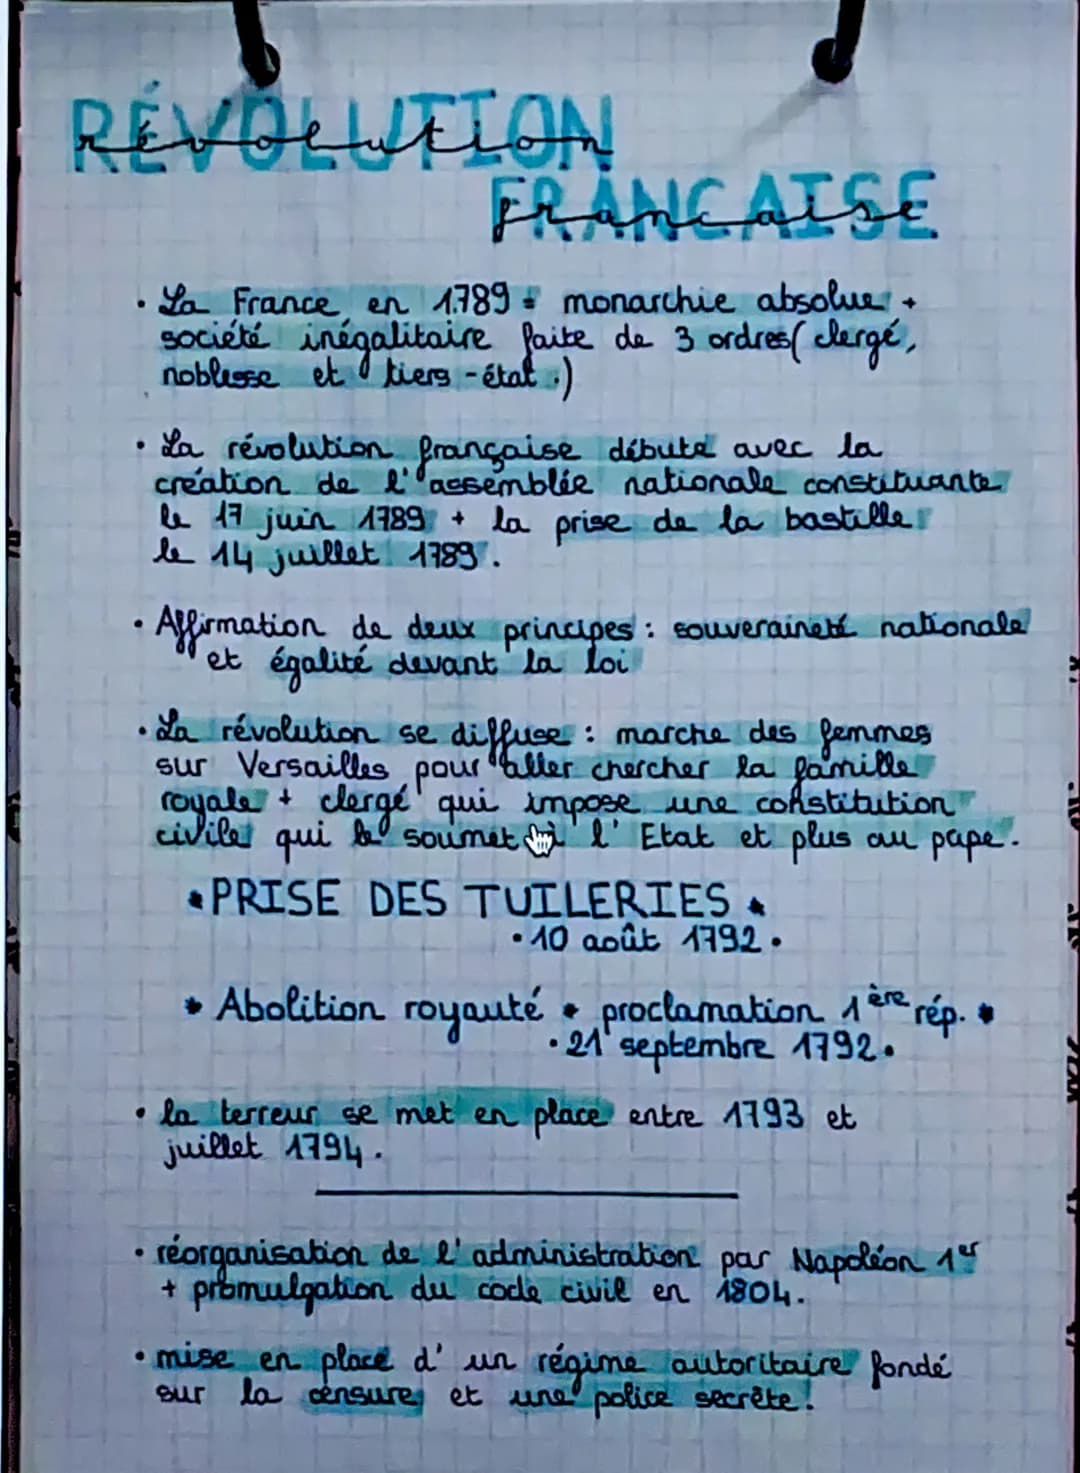 RÉVOLUTION
révolution
FRANCAISE
francaise
• La France en 1789 = monarchie absolue +
société inégalitaire faite de 3 ordres (clergé,
noblesse et tiers-état.)
• La révolution française débute avec la
création de l'assemblée nationale constituante
le 17 juin 1789 + la prise de la bastille
le 14 juillet 1789.
• Affirmation de deux principes : souveraineté nationale
et égalité devant la loi
• La révolution se diffuse : marche des femmes
sur Versailles pour aller chercher la famille
royale + clergé qui impose une constitution
civile qui le soumet à l'Etat et plus au pape.
• PRISE DES TUILERIES •
• 10 août 1792 •
• Abolition royauté • proclamation 1ère rép. •
• 21 septembre 1792 •
• la terreur se met en place entre 1793 et
juillet 1794.
• réorganisation de l'administration par Napoléon 1er
+ promulgation du code civil en 1804.
• mise en place d'un régime autoritaire fondé
sur la censure et une police secrète.